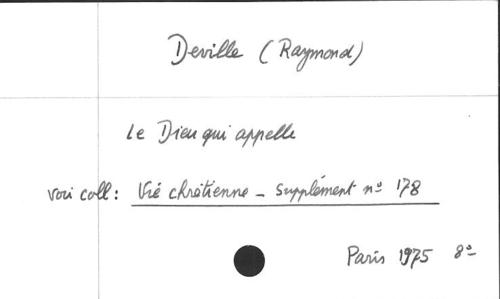 Deville (Raymond)
Le Dieu qui appelle
voir coll: Vie chrétienne - Supplément nº 178
Paris 1975 8º